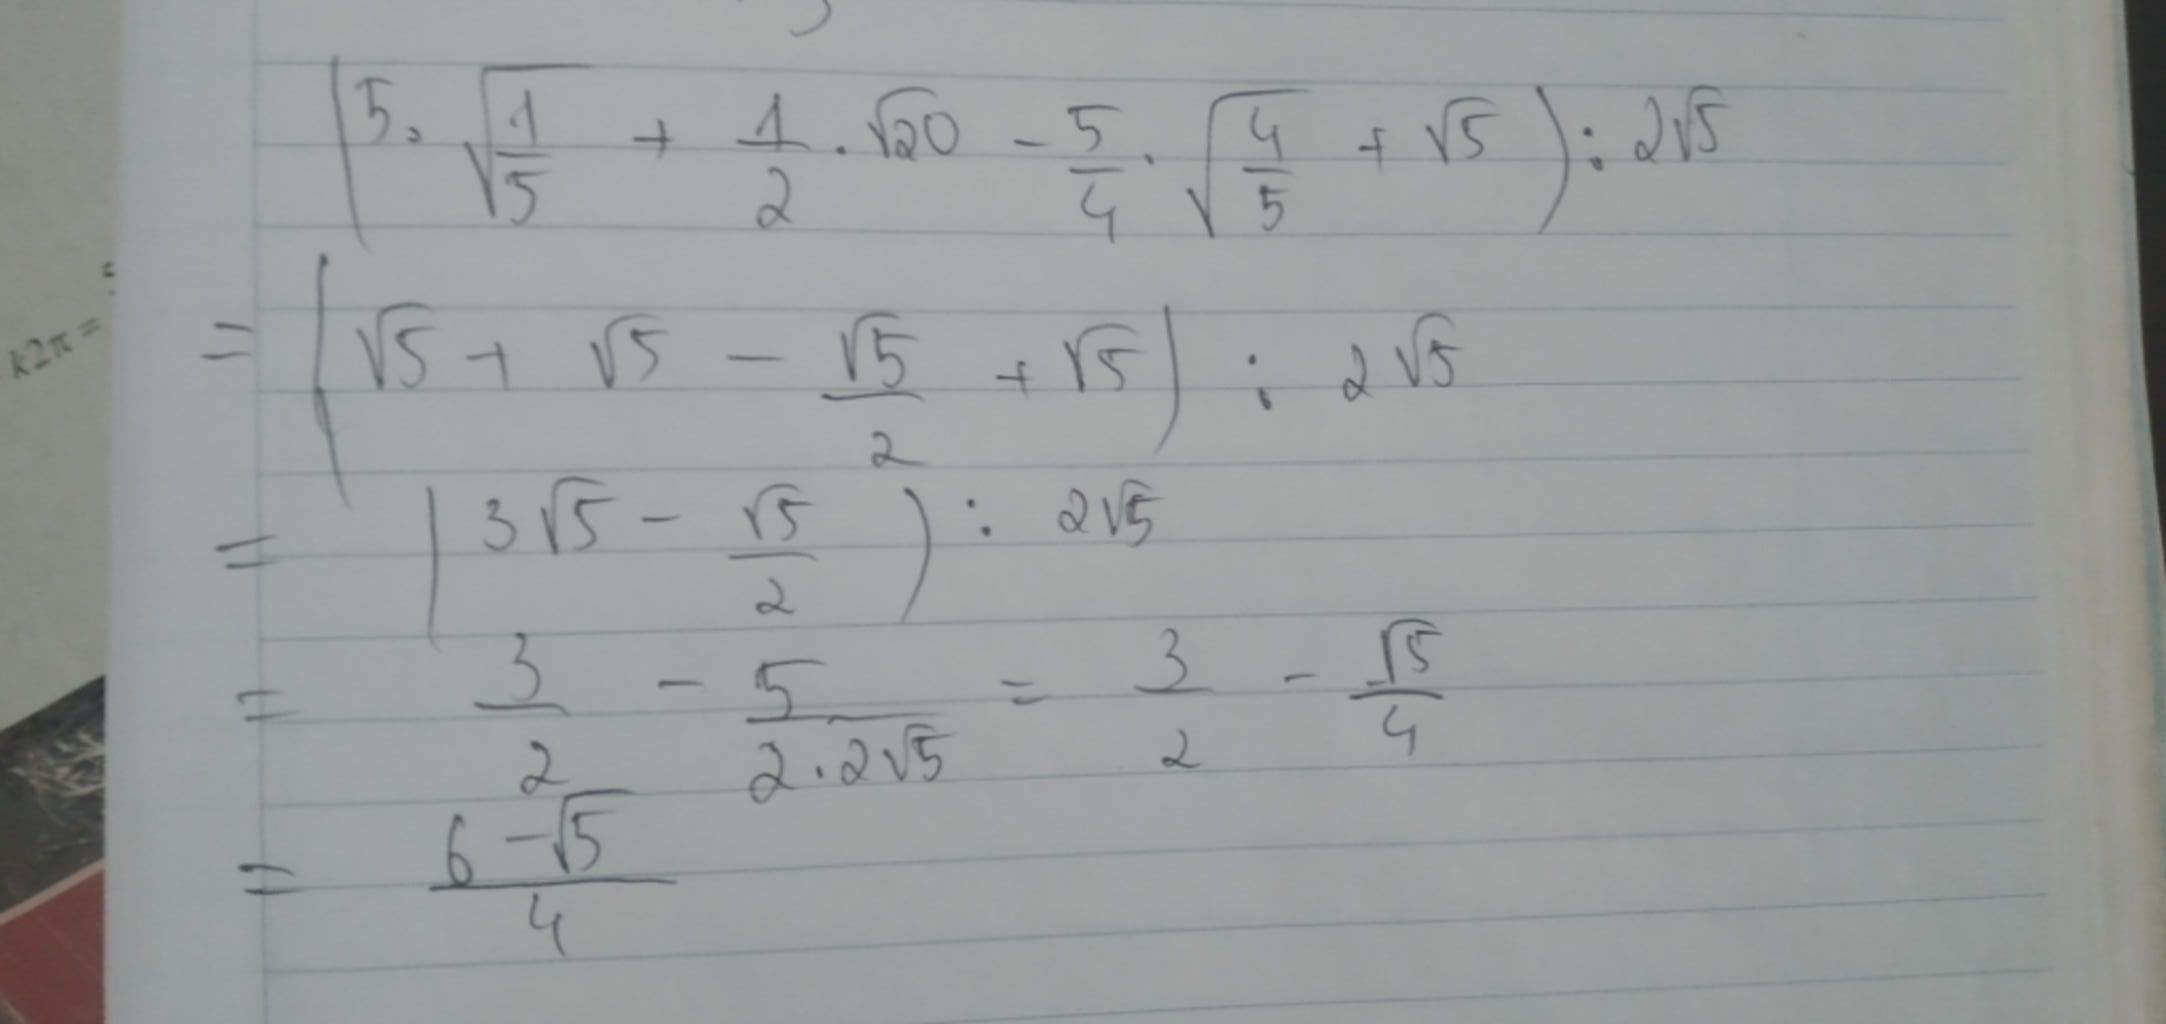 k2π =
(5 · √(1/5) + 1/2 · √20 - 5/4 · √(4/5) + √5) : 2√5
= (√5 + √5 - √5/2 + √5) : 2√5
= (3√5 - √5/2) : 2√5
= 3/2 - 5/(2.2√5) = 3/2 - √5/4
= (6 - √5)/4